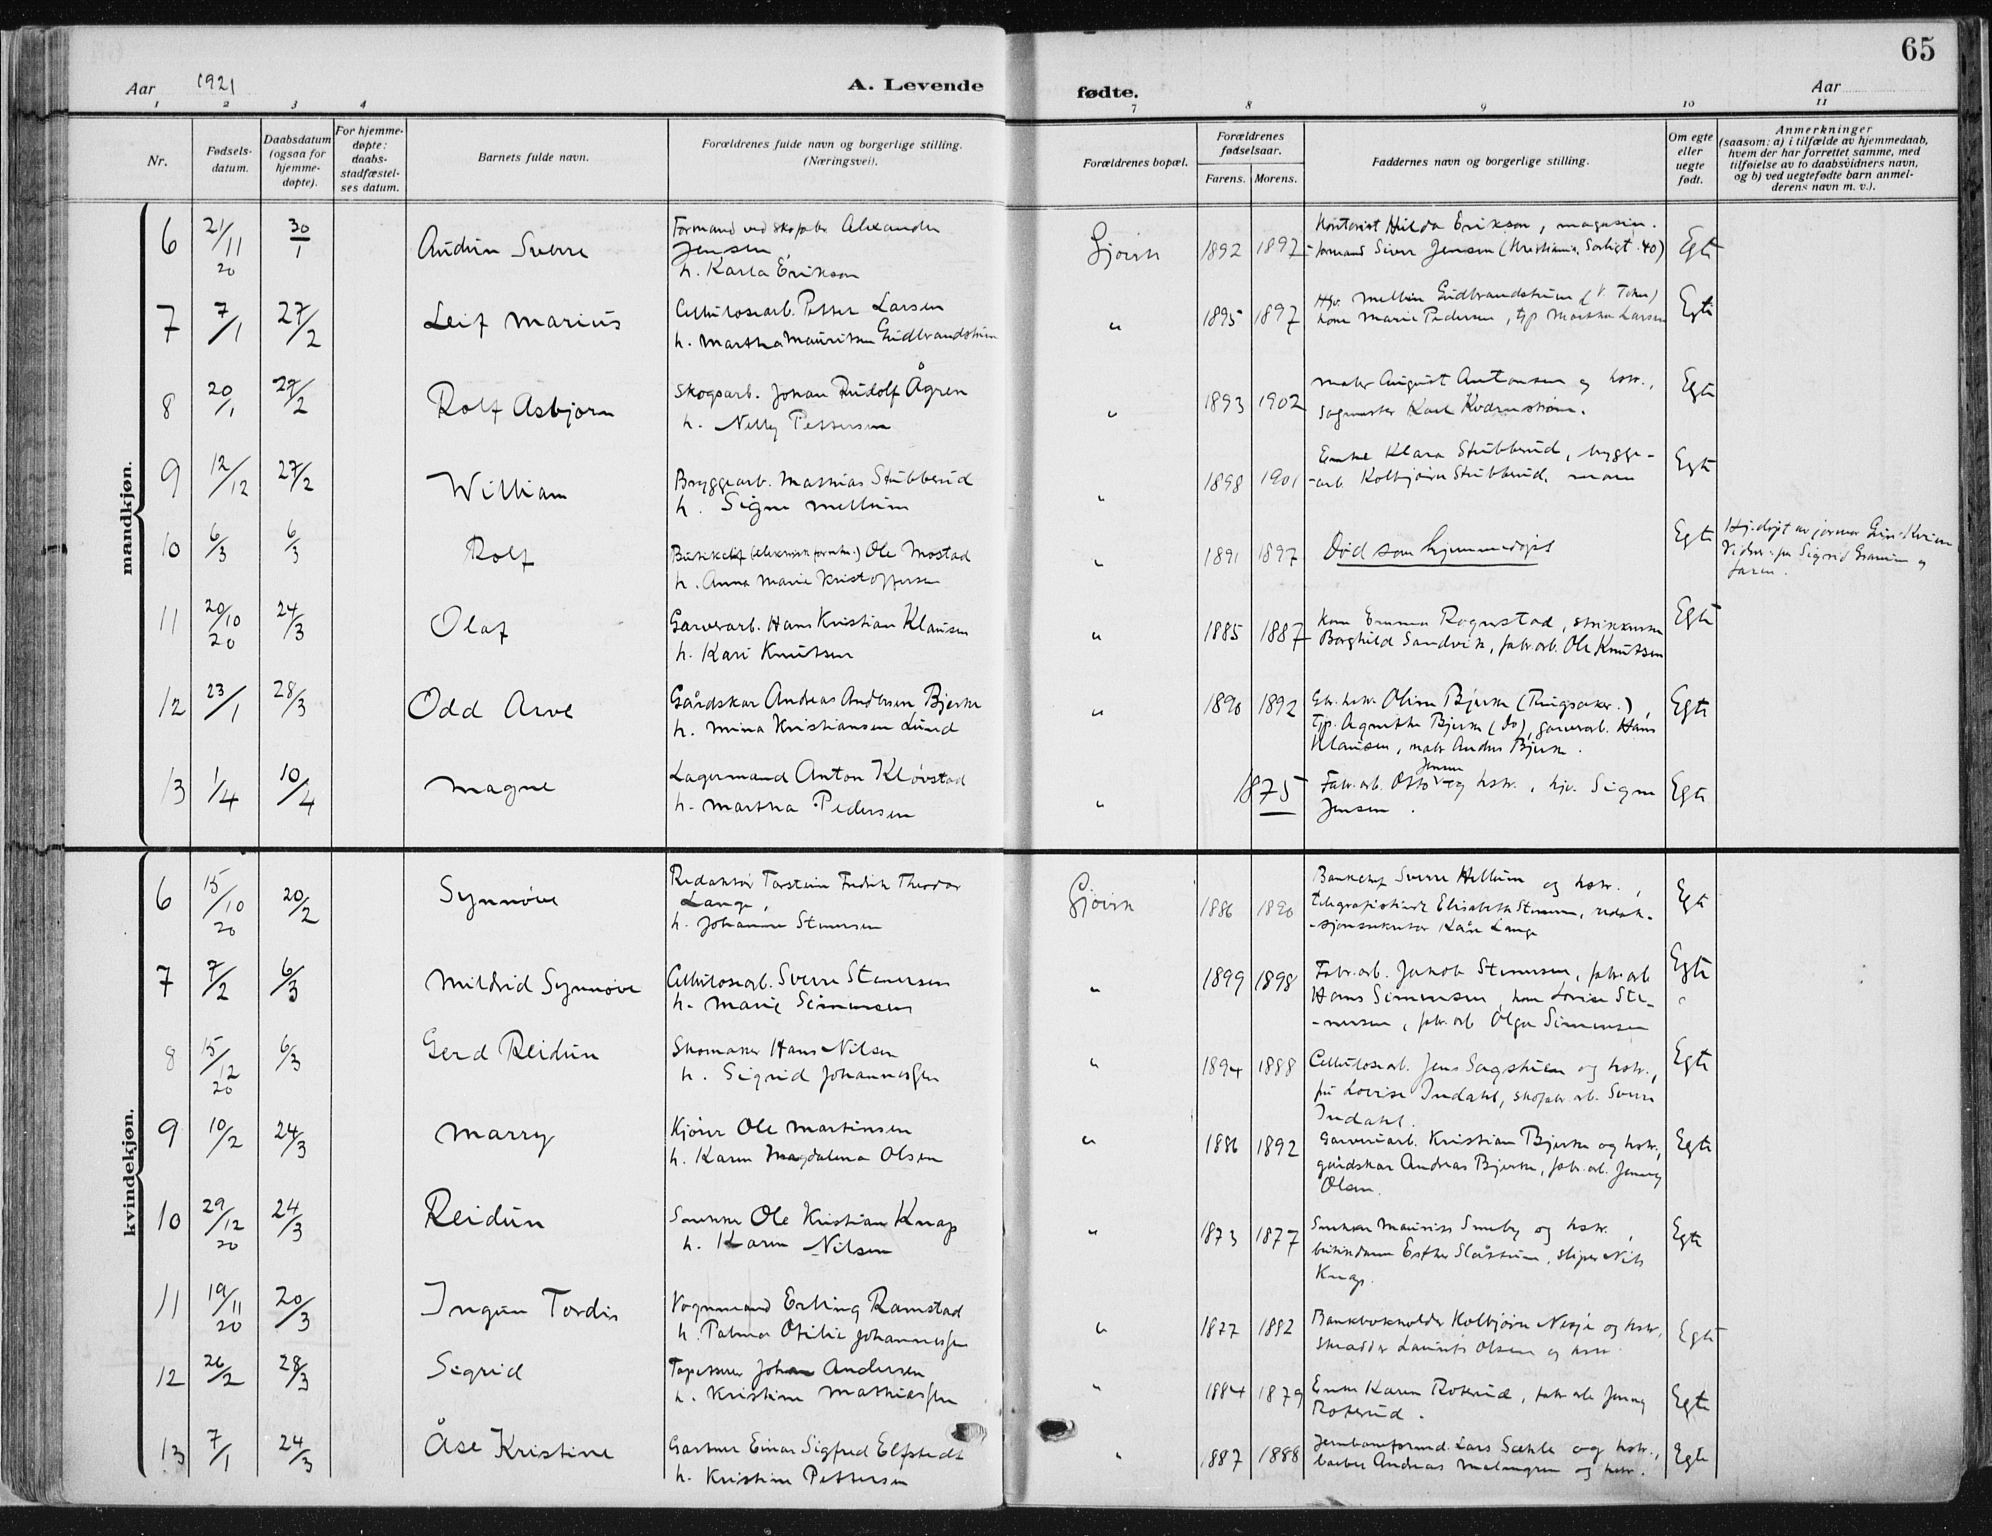 65
Aar 1921
A. Levende
fødte.
Aar
1 2 3 4 7 8 9 10 11
Nr.
Fødsels-
datum.
Daabsdatum
(ogsaa for
hjemme-
døpte).
For hjemme-
døpte:
daabs-
stadfæstel-
ses datum.
Barnets fulde navn.
Forældrenes fulde navn og borgerlige stilling.
(Næringsvei).
Forældrenes bopæl.
Forældrenes
fødselsaar.
Farens. Morens.
Faddernes navn og borgerlige stilling.
Om egte
eller
uegte
født.
Anmerkninger
(saasom: a) i tilfælde av hjemmedaab,
hvem der har forrettet samme, med
tilføielse av to daabsvidners navn,
og b) ved uegtefødte barn anmel-
derens navn m. v.).
mandkjøn.
6 21/11 20 30/1 Audun Sverre
Formand ved skofabr Alexander
Jensen,
h. Karla Erikson
Gjøvik 1892 1897
Kontorist Hilda Erikson, magasin-
formand Sverr Jensen (Kristiania, 40) Egte
7 7/1 27/2 Leif Marius
Cellulosearb. Petter Larsen
h. Martha Mauritsen Gudbrandstuen
" 1895 1897
Gudbrandstuen (V. Toten)
kone Marie Pedersen, tjp Martha Larsen Egte
8 20/1 27/2 Rolf Asbjørn
Skogsarb. Johan Rudolf Ågren
h. Nelly Pettersen
" 1893 1902
maler August Antonsen og hstr.,
sagmester Karl Kvernstrøm. Egte
9 12/12 27/2 William
Bryggearb. Mathias Stubberud
h. Signe Mellum
" 1898 1901
Enke Klara Stubberud, brygge-
-arb. Kolbjørn Stubberud, moren Egte
10 6/3 6/3 Rolf
Ole Mostad
h. Anna Marie Kristoffersen
" 1891 1897
Død som hjemmedøpt Egte
Hj.døpt av jormor
Vidner: frk Sigrid og
faren.
11 20/10 20 24/3 Olaf
Garverarb. Hans Kristian Klausen
h. Kari Knutsen
" 1885 1887
kone Emma Rognstad, strikkerske
Borghild Sandvik, fabr.arb. Ole Knutsen Egte
12 23/1 28/3 Odd Arve
Gårdskar Andreas Andersen Bjerke
h. Mina Kristiansen Lund
" 1890 1892
Gbr.hstr. Oline Bjerke (Ringsaker.),
tjp. Agnethe Bjerke (do), garverarb. Hans
Klausen, maler Anders Bjerke. Egte
13 1/4 10/4 Magne
Lagermand Anton Kløvstad
h. Martha Pedersen
" 1875
Jensen
Fabr.arb. Otto og hstr., hjv. Signe
Jensen. Egte
kvindekjøn.
6 15/10 20 20/2 Synnøve
Redaktør Torstein Fredrik Theodor
Lange,
h. Johanne Stenersen
Gjøvik 1886 1890
Bankchef Sverre Hellum og hstr.,
telegrafistinde Elisabeth Stenersen, redak-
-sjonssekretær Kåre Lange Egte
7 7/2 6/3 Mildrid Synnøve
Cellulosearb. Sverre Stenersen
h. Marie Simensen
" 1899 1898
Fabr.arb. Jakob Stenersen, fabr.arb
Hans Simensen, kone Lovise Ste-
-nersen, fabr.arb Olga Simensen Egte
8 15/12 20 6/3 Gerd Reidun
Skomaker Hans Nilsen
h. Sigrid Johannessen
" 1894 1888
Cellulosearb. Jens Sagstuen og hstr.,
frk Lovise Indahl, skofabr.arb. Sverre
Indahl. Egte
9 10/2 24/3 Marry
Kjører Ole Martinsen
h. Karen Magdalena Olsen
" 1886 1892
Garveriarb. Kristian Bjerke og hstr.,
gårdskar Andreas Bjerke, fabr.arb. Jenny
Olsen. Egte
10 29/12 20 24/3 Reidun
Snekker Ole Kristian Knap
h. Karen Nilsen
" 1873 1877
Snekker Maurits Smeby og hstr.,
butikdame Esther Slåstuen, sliper Nils
Knap. Egte
11 19/11 20 20/3 Ingun Tordis
Vognmand Erling Ramstad
h. Palma Otilie Johannessen
" 1877 1882
Bankbokholder Kolbjørn Nesje og hstr.
skrædder Laurits Olsen og hstr Egte
12 26/2 28/3 Sigrid
Tapetserer Johan Andersen
h. Kristine Mathiessen
" 1884 1879
Enke Karen Roterud, fabr arb Jenny
Roterud. Egte
13 7/1 24/3 Åse Kristine
Gartner Einar Sigfred Elfstedt
h. Kristine Pettersen
" 1887 1888
Jernbaneformd. Lars Sæhle og hstr.,
barber Andreas Malmgren og hstr. Egte